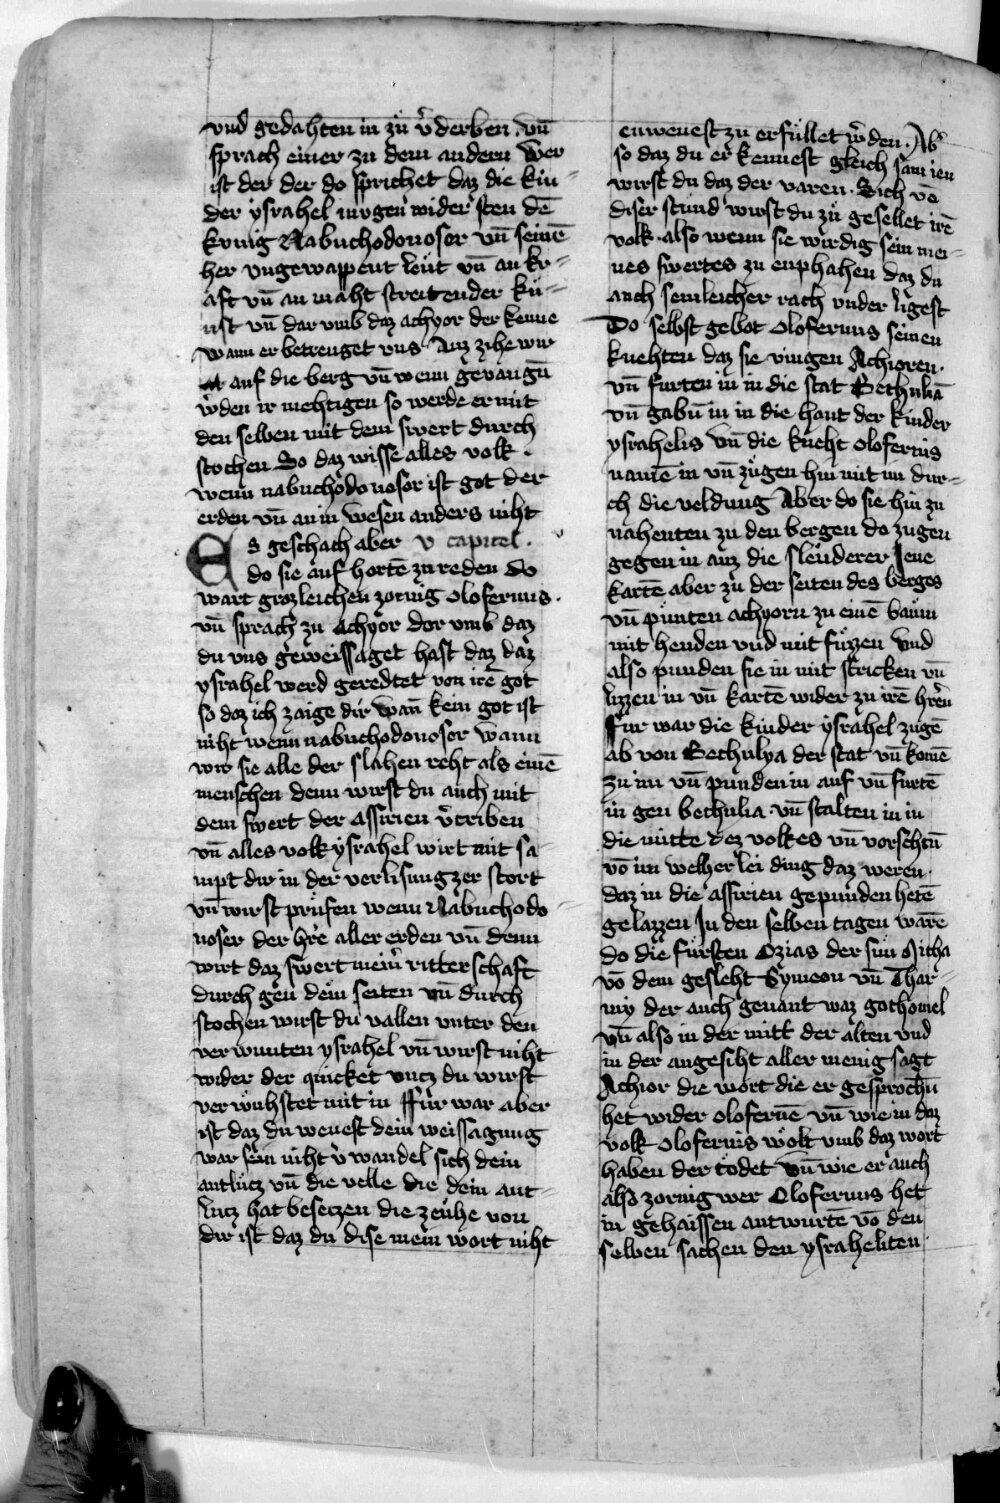 vnd gedahten in zů v̓derben . vn̄
sprach einer zu dem andern Wer
ist der der do sprichet daz die kin-
der ysrahel mvgen wider sten dē
kvnig Nabuchodonosor vn̄ seinē
her vngewappent leüt vn̄ an kr-
aft vn̄ an maht streitender kü-
nst vn̄ dar vmb daz achyor der kenne
wann er betreuget vns Auz zihe wir
auf die berg vn̄ wenn gevangn̄
w̓den ir mehtigen so werde er mit
den selben mit dem swert durch
stochen So daz wisse alles volk .
wenn nabuchodonosor ist got der
erden vn̄ an in wesen anders niht
Es geschach aber v capitel .
do sie auf hortē zu reden do
wart grozleichen zornig olofernus .
vn̄ sprach zu Achyor dor vmb daz
du vns geweissaget hast daz daz
ysrahel werd geredtet von irē got
so daz ich zaige dir wan̄ kein got ist
niht wenn nabuchodonosor wann
wir sie alle der slahen reht als einē
menschen denn wirst du auch mit
dem swert der assirien v̓triben
vn̄ alles volk ysrahel wirt mit sa-
mpt dir in der verlisung zer stort
vn̄ wirst prüfen wenn Nabuchodo-
noser der hr̓e aller erden vn̄ denn
wirt daz swert meīn ritterschaft
durch gen dein seiten vn̄ durch
stochen wirst du vallen vnter den
verwunten ysrahel vn̄ wirst niht
wider der quicket vncz du wirst
verwühstet mit in ffür war aber
ist daz du wenest dein weissagung
war sein niht v̓wandel sich dein
antlücz vn̄ die velle die dein ant-
lucz hat besetzen die zeühe von
dir ist daz du dise mein wort niht
enwenest zu erfüllet w̓den . Ab̓
so daz du er kennest gleich sam ien
wirst du daz der varen . Sich vō
diser stund wirst du zü gesellet irē
volk . also wenn sie wirdig sein mei-
nes swertes zu enphahen daz du
auch semleicher rach vnder ligest
Do selbst gebot olofernus seinen
knehten daz sie vingen Achioren .
vn̄ furten in in die stat Bethuliā
vn̄ gabn̄ in in die hant der kinder
ysrahelis vn̄ die kneht olofernis
namē in vn̄ zügen hin mit im dur-
ch die veldung Aber do sie hin zu
nahenten zu den bergen do zugen
gegen in auz die slenderer Jene
kartē aber zü der seiten des berges
vn̄ punten achyorn zu einē baum
mit henden vnd mit füzzen Vnd
also punden sie in mit stricken vn̄
lizzen in vn̄ kartē wider zu irē hr̓en
ffur war die kinder ysrahel zugē
ab von Bethulya der stat vn̄ komē
zu im vn̄ punden in auf vn̄ furtē
in gen bethulia vn̄ stalten in in
die mitte dez volkes vn̄ vorschtn̄
vō im welher lei ding daz weren .
daz in die assirien gepunden hetē
gelazzen Jn den selben tagen warē
do die fürsten Ozias der sün Micha
vō dem gesleht Symeon vn̄ Thar-
my der auch genant waz gothoniel
vn̄ also in der mitt der alten vnd
in der angesiht aller menig sagt
Achior die wort die er gesprochn̄
het wider olofernē vn̄ wie in daz
volk olofernis wolt vmb daz wort
haben der tödet vn̄ wie er auch
also zornig wer Olofernus het
in gehaissen antwurtē vō den
selben sachen den ysraheliten .